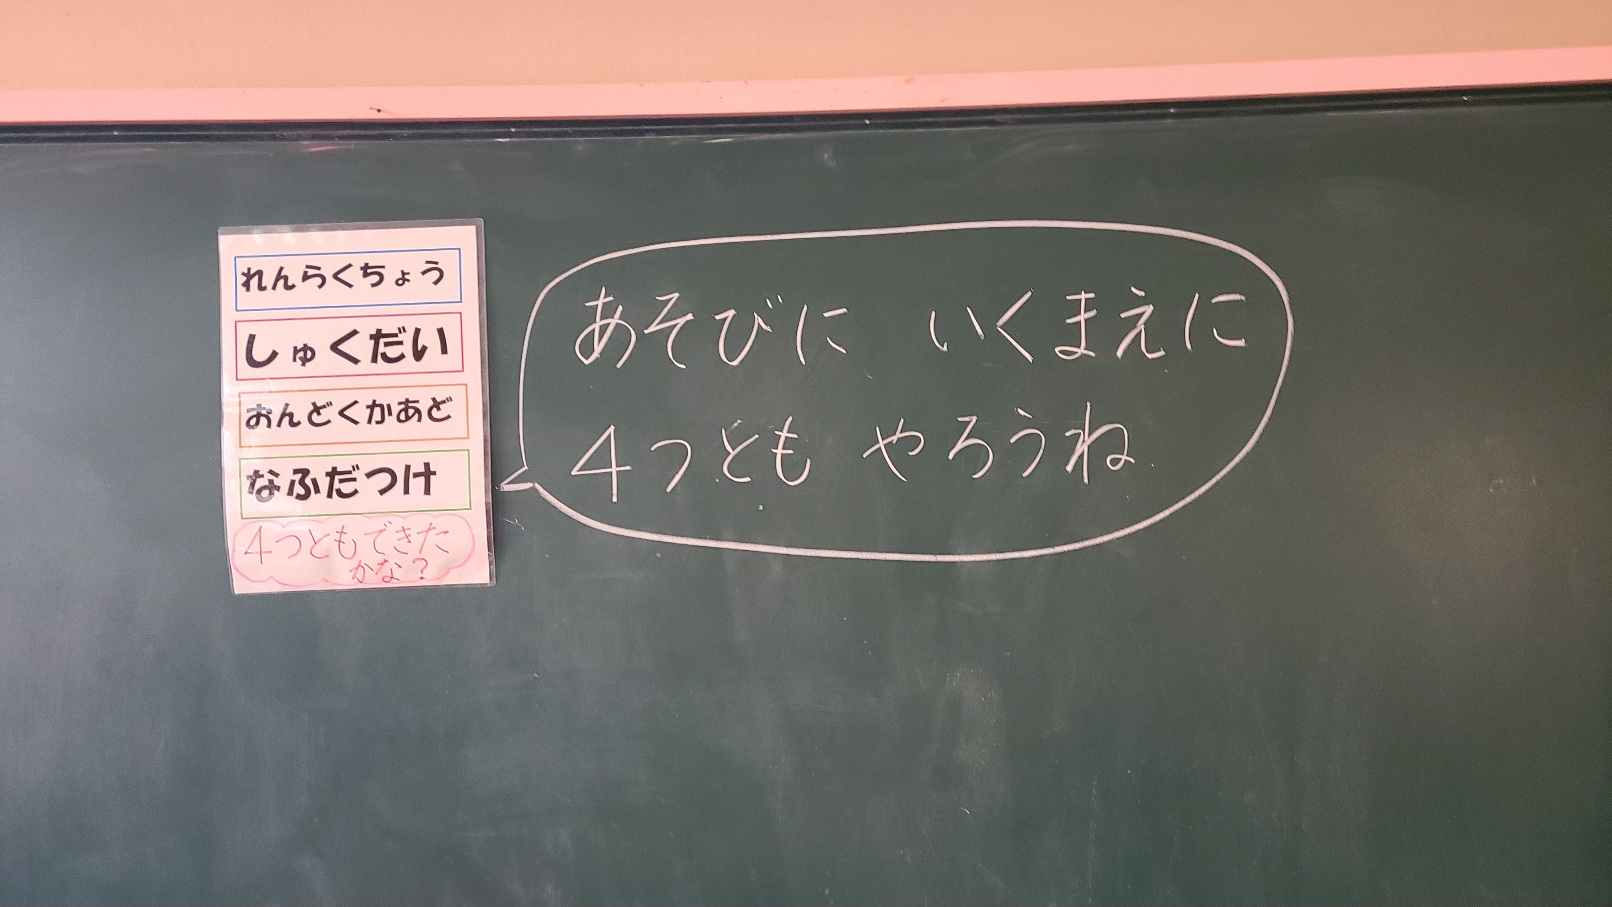 れんらくちょう
しゅくだい
おんどくかあど
なふだつけ
4つともできた
かな？
あそびに いくまえに
4つとも やろうね